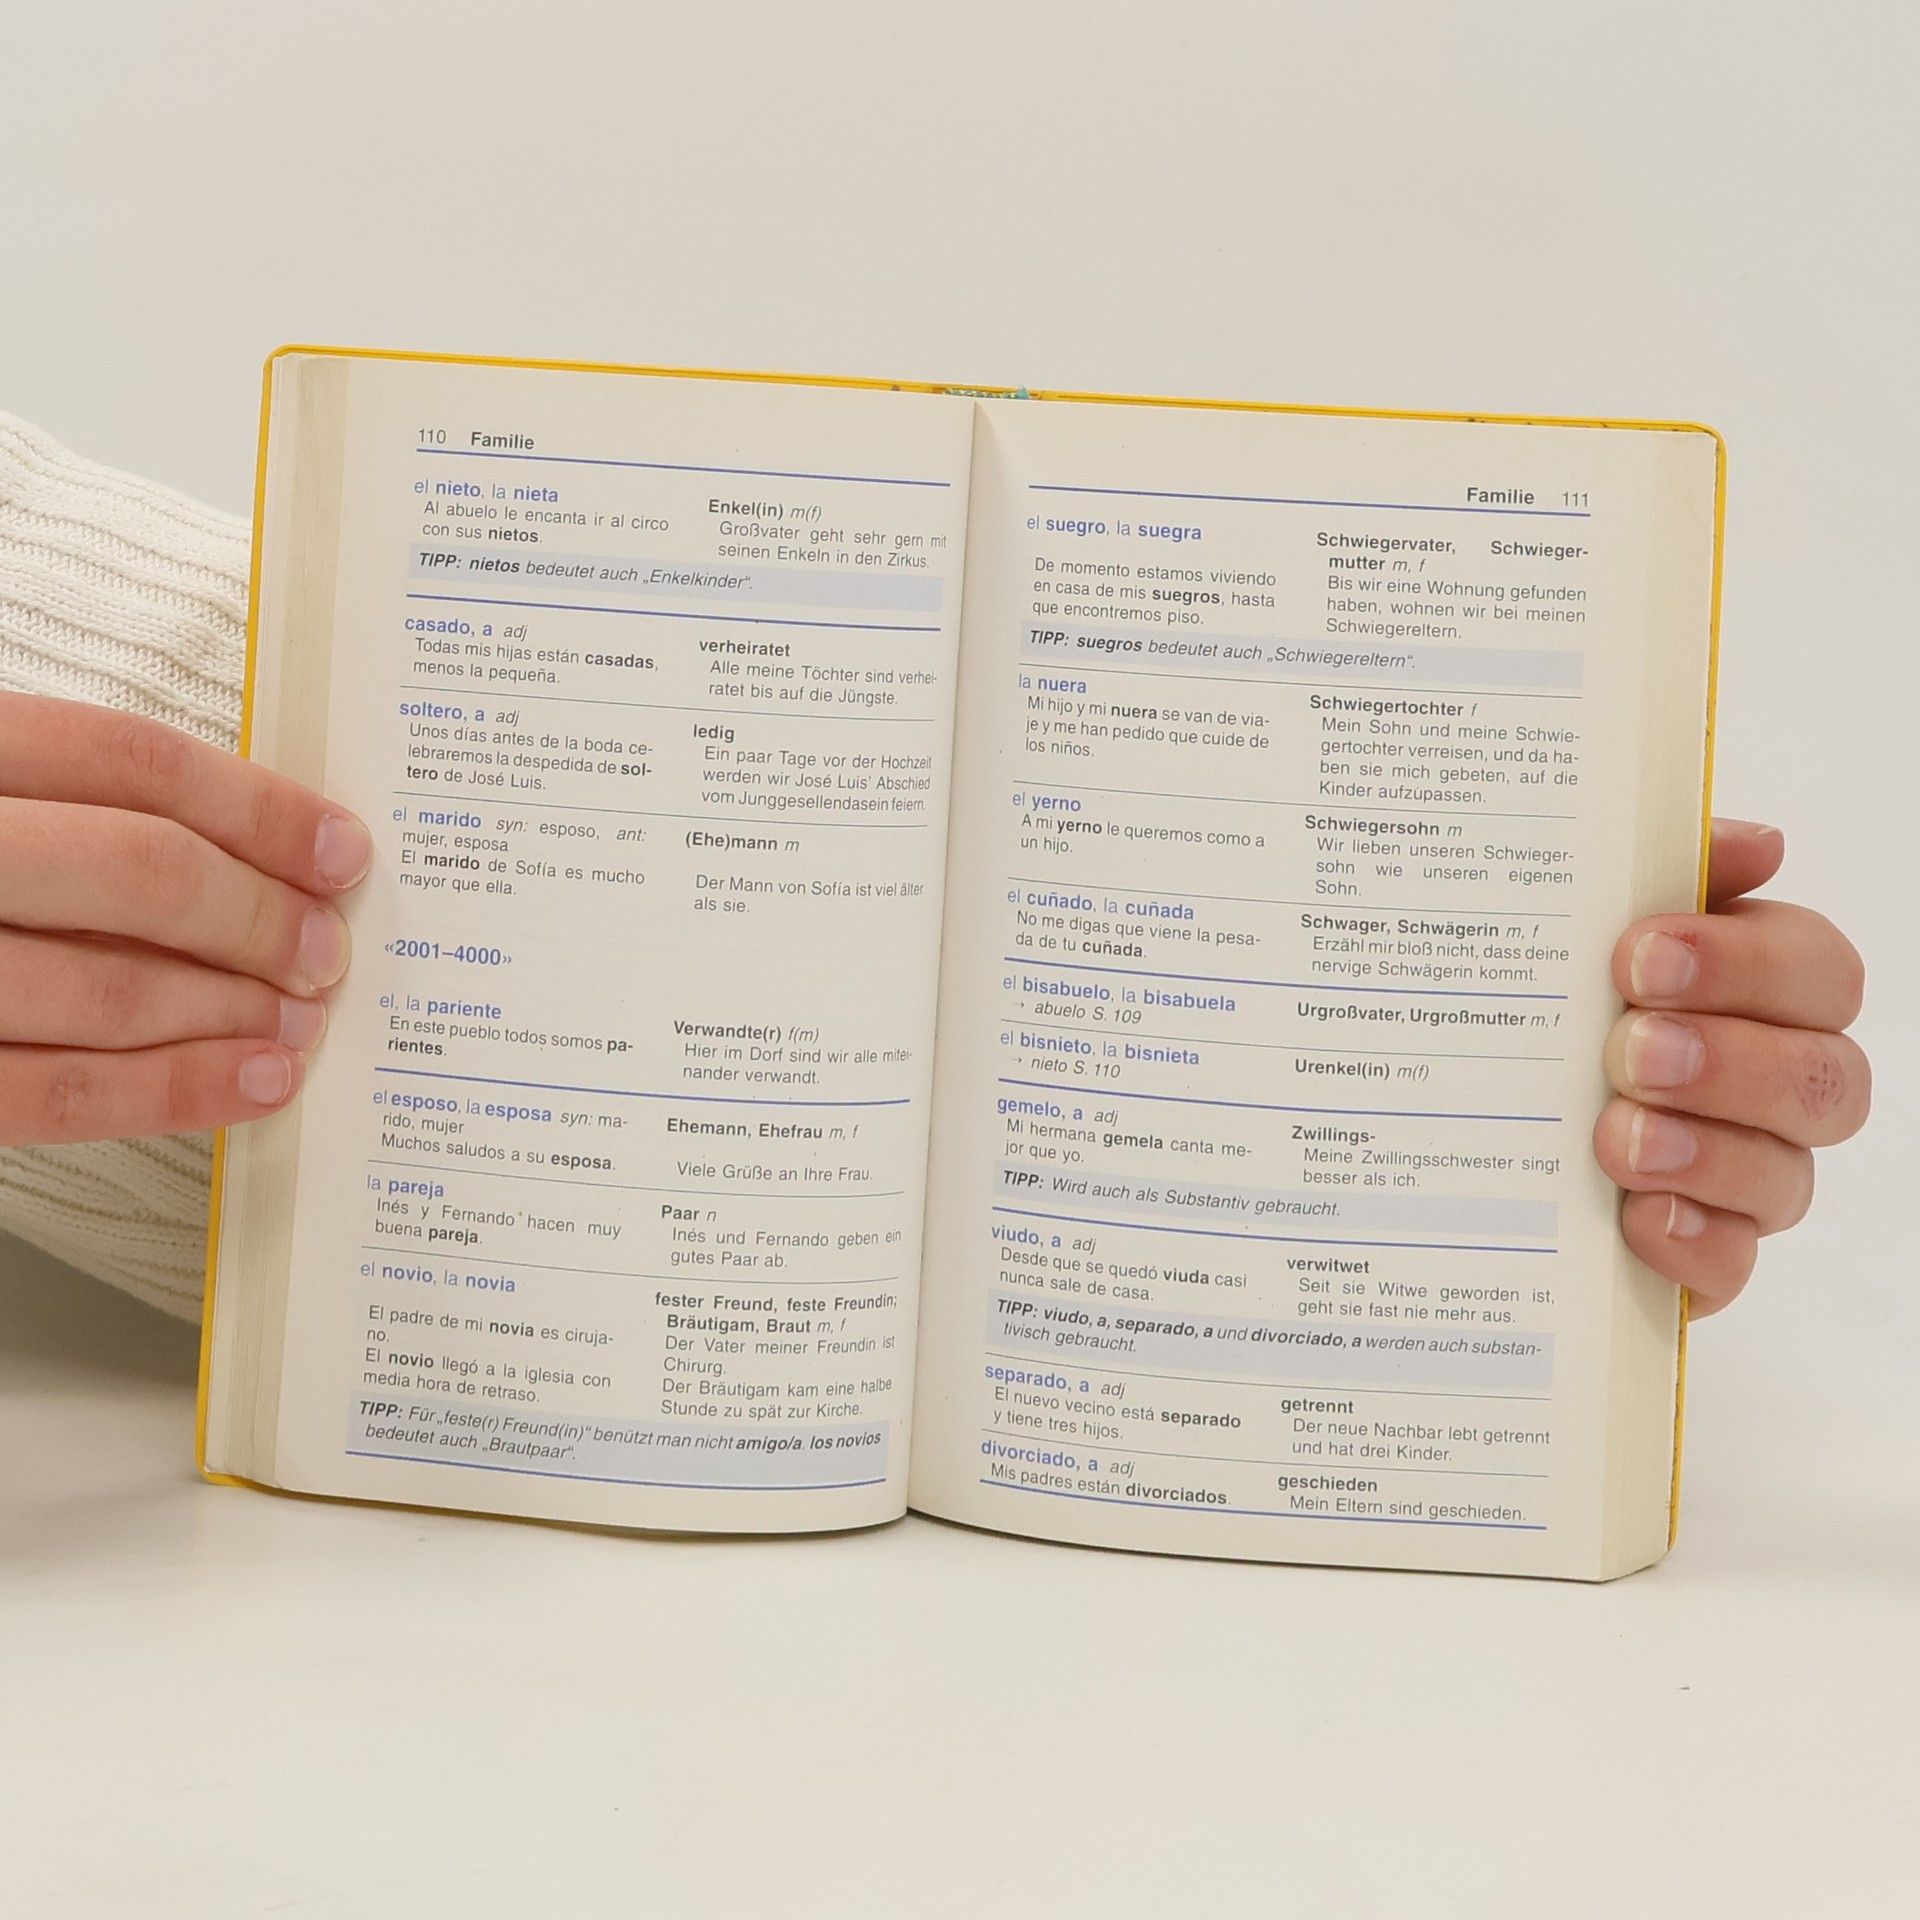 110 Familie
el nieto, la nieta
Al abuelo le encanta ir al circo
con sus nietos.
Enkel(in) m(f)
Großvater geht sehr gern mit
seinen Enkeln in den Zirkus.
TIPP: nietos bedeutet auch „Enkelkinder“.
casado, a adj
Todas mis hijas están casadas,
menos la pequeña.
verheiratet
Alle meine Töchter sind verhei-
ratet bis auf die Jüngste.
soltero, a adj
Unos días antes de la boda ce-
lebraremos la despedida de sol-
tero de José Luis.
ledig
Ein paar Tage vor der Hochzeit
werden wir José Luis' Abschied
vom Junggesellendasein feiern.
el marido syn: esposo, ant:
mujer, esposa
El marido de Sofía es mucho
mayor que ella.
(Ehe)mann m
Der Mann von Sofía ist viel älter
als sie.
«2001–4000»
el, la pariente
En este pueblo todos somos pa-
rientes.
Verwandte(r) f(m)
Hier im Dorf sind wir alle mitei-
nander verwandt.
el esposo, la esposa syn: ma-
rido, mujer
Muchos saludos a su esposa.
Ehemann, Ehefrau m, f
Viele Grüße an Ihre Frau.
la pareja
Inés y Fernando hacen muy
buena pareja.
Paar n
Inés und Fernando geben ein
gutes Paar ab.
el novio, la novia
El padre de mi novia es ciruja-
no.
El novio llegó a la iglesia con
media hora de retraso.
fester Freund, feste Freundin;
Bräutigam, Braut m, f
Der Vater meiner Freundin ist
Chirurg.
Der Bräutigam kam eine halbe
Stunde zu spät zur Kirche.
TIPP: Für „feste(r) Freund(in)“ benützt man nicht amigo/a. los novios
bedeutet auch „Brautpaar“.
Familie 111
el suegro, la suegra
De momento estamos viviendo
en casa de mis suegros, hasta
que encontremos piso.
Schwiegervater, Schwieger-
mutter m, f
Bis wir eine Wohnung gefunden
haben, wohnen wir bei meinen
Schwiegereltern.
TIPP: suegros bedeutet auch „Schwiegereltern“.
la nuera
Mi hijo y mi nuera se van de via-
je y me han pedido que cuide de
los niños.
Schwiegertochter f
Mein Sohn und meine Schwie-
gertochter verreisen, und da ha-
ben sie mich gebeten, auf die
Kinder aufzupassen.
el yerno
A mi yerno le queremos como a
un hijo.
Schwiegersohn m
Wir lieben unseren Schwieger-
sohn wie unseren eigenen
Sohn.
el cuñado, la cuñada
No me digas que viene la pesa-
da de tu cuñada.
Schwager, Schwägerin m, f
Erzähl mir bloß nicht, dass deine
nervige Schwägerin kommt.
el bisabuelo, la bisabuela
→ abuelo S. 109
Urgroßvater, Urgroßmutter m, f
el bisnieto, la bisnieta
→ nieto S. 110
Urenkel(in) m(f)
gemelo, a adj
Mi hermana gemela canta me-
jor que yo.
Zwillings-
Meine Zwillingsschwester singt
besser als ich.
TIPP: Wird auch als Substantiv gebraucht.
viudo, a adj
Desde que se quedó viuda casi
nunca sale de casa.
verwitwet
Seit sie Witwe geworden ist,
geht sie fast nie mehr aus.
TIPP: viudo, a, separado, a und divorciado, a werden auch substan-
tivisch gebraucht.
separado, a adj
El nuevo vecino está separado
y tiene tres hijos.
getrennt
Der neue Nachbar lebt getrennt
und hat drei Kinder.
divorciado, a adj
Mis padres están divorciados.
geschieden
Mein Eltern sind geschieden.